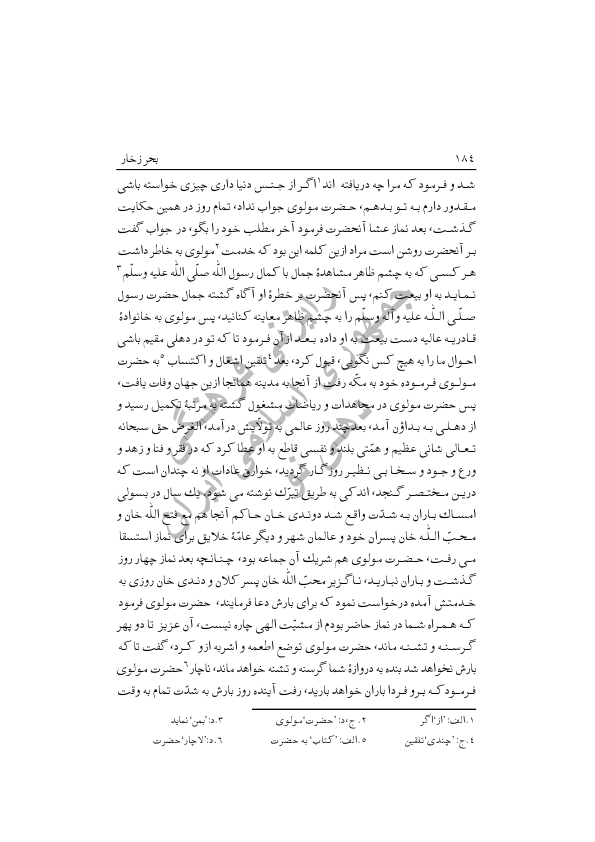 ۱۸٤ بحر زخار
شد و فرمود که مرا چه دریافته اند۱ اگر از جنس دنیا داری چیزی خواسته باشی
مقدور دارم به تو بدهم، حضرت مولوی جواب نداد، تمام روز در همین حکایت
گذشت، بعد نماز عشا آنحضرت فرمود آخر مطلب خود را بگو، در جواب گفت
بر آنحضرت روشن است مراد ازین کلمه این بود که خدمت۲ مولوی به خاطر داشت
هر کسی که به چشم ظاهر مشاهدهٔ جمال با کمال رسول الله صلّی الله علیه وسلّم۳
نماید به او بیعت کنم، پس آنحضرت بر خطرهٔ او آگاه گشته جمال حضرت رسول
صلّی اللّه علیه وآله وسلّم را به چشم ظاهر معاینه کنانید، پس مولوی به خانوادهٔ
قادریه عالیه دست بیعت به او داده بعد از آن فرمود تا که تو در دهلی مقیم باشی
احوال ما را به هیچ کس نگویی، قبول کرد، بعد٤ تلقین اشغال و اکتساب٥ به حضرت
مولوی فرموده خود به مکّه رفت از آنجا به مدینه همانجا ازین جهان وفات یافت،
پس حضرت مولوی در مجاهدات و ریاضات مشغول گشته به مرتبهٔ تکمیل رسید و
از دهلی به بداؤن آمد، بعد چند روز عالمی به تولّایش درآمد، الغرض حق سبحانه
تعالی شانی عظیم و همّتی بلند و نفسی قاطع به او عطا کرد که در فقر و فنا و زهد و
ورع و جود و سخا بی نظیر روزگار گردید، خوارق عادات او نه چندان است که
درین مختصر گنجد، اندکی به طریق تبرّك نوشته می شود، یك سال در بسولی
امساك باران به شدّت واقع شد دوندی خان حاکم آنجا هم مع فتح الله خان و
محبّ اللّه خان پسران خود و عالمان شهر و دیگر عامّهٔ خلایق برای نماز استسقا
می رفت، حضرت مولوی هم شریك آن جماعه بود، چنانچه بعد نماز چهار روز
گذشت و باران نبارید، ناگزیر محبّ الله خان پسر کلان و دندی خان روزی به
خدمتش آمده درخواست نمود که برای بارش دعا فرمایند، حضرت مولوی فرمود
که همراه شما در نماز حاضر بودم از مشیّت الهی چاره نیست، آن عزیز تا دو پهر
گرسنه و تشنه ماند، حضرت مولوی توضع اطعمه و اشربه ازو کرد، گفت تا که
بارش نخواهد شد بنده به دروازهٔ شما گرسنه و تشنه خواهد ماند، ناچار٦ حضرت مولوی
فرمود که برو فردا باران خواهد بارید، رفت آینده روز بارش به شدّت تمام به وقت
۱.الف: ’از‘ اگر ۲. ج، د: ’حضرت‘ مولوی ۳.د: ’بمن‘ نماید
٤.ج: ’چندی‘ تلقین ٥.الف: ’کتاب‘ به حضرت ٦.د: ’لاچار‘ حضرت
رایزنی فرهنگی
جمهوری اسلامی ایران
دهلی نو